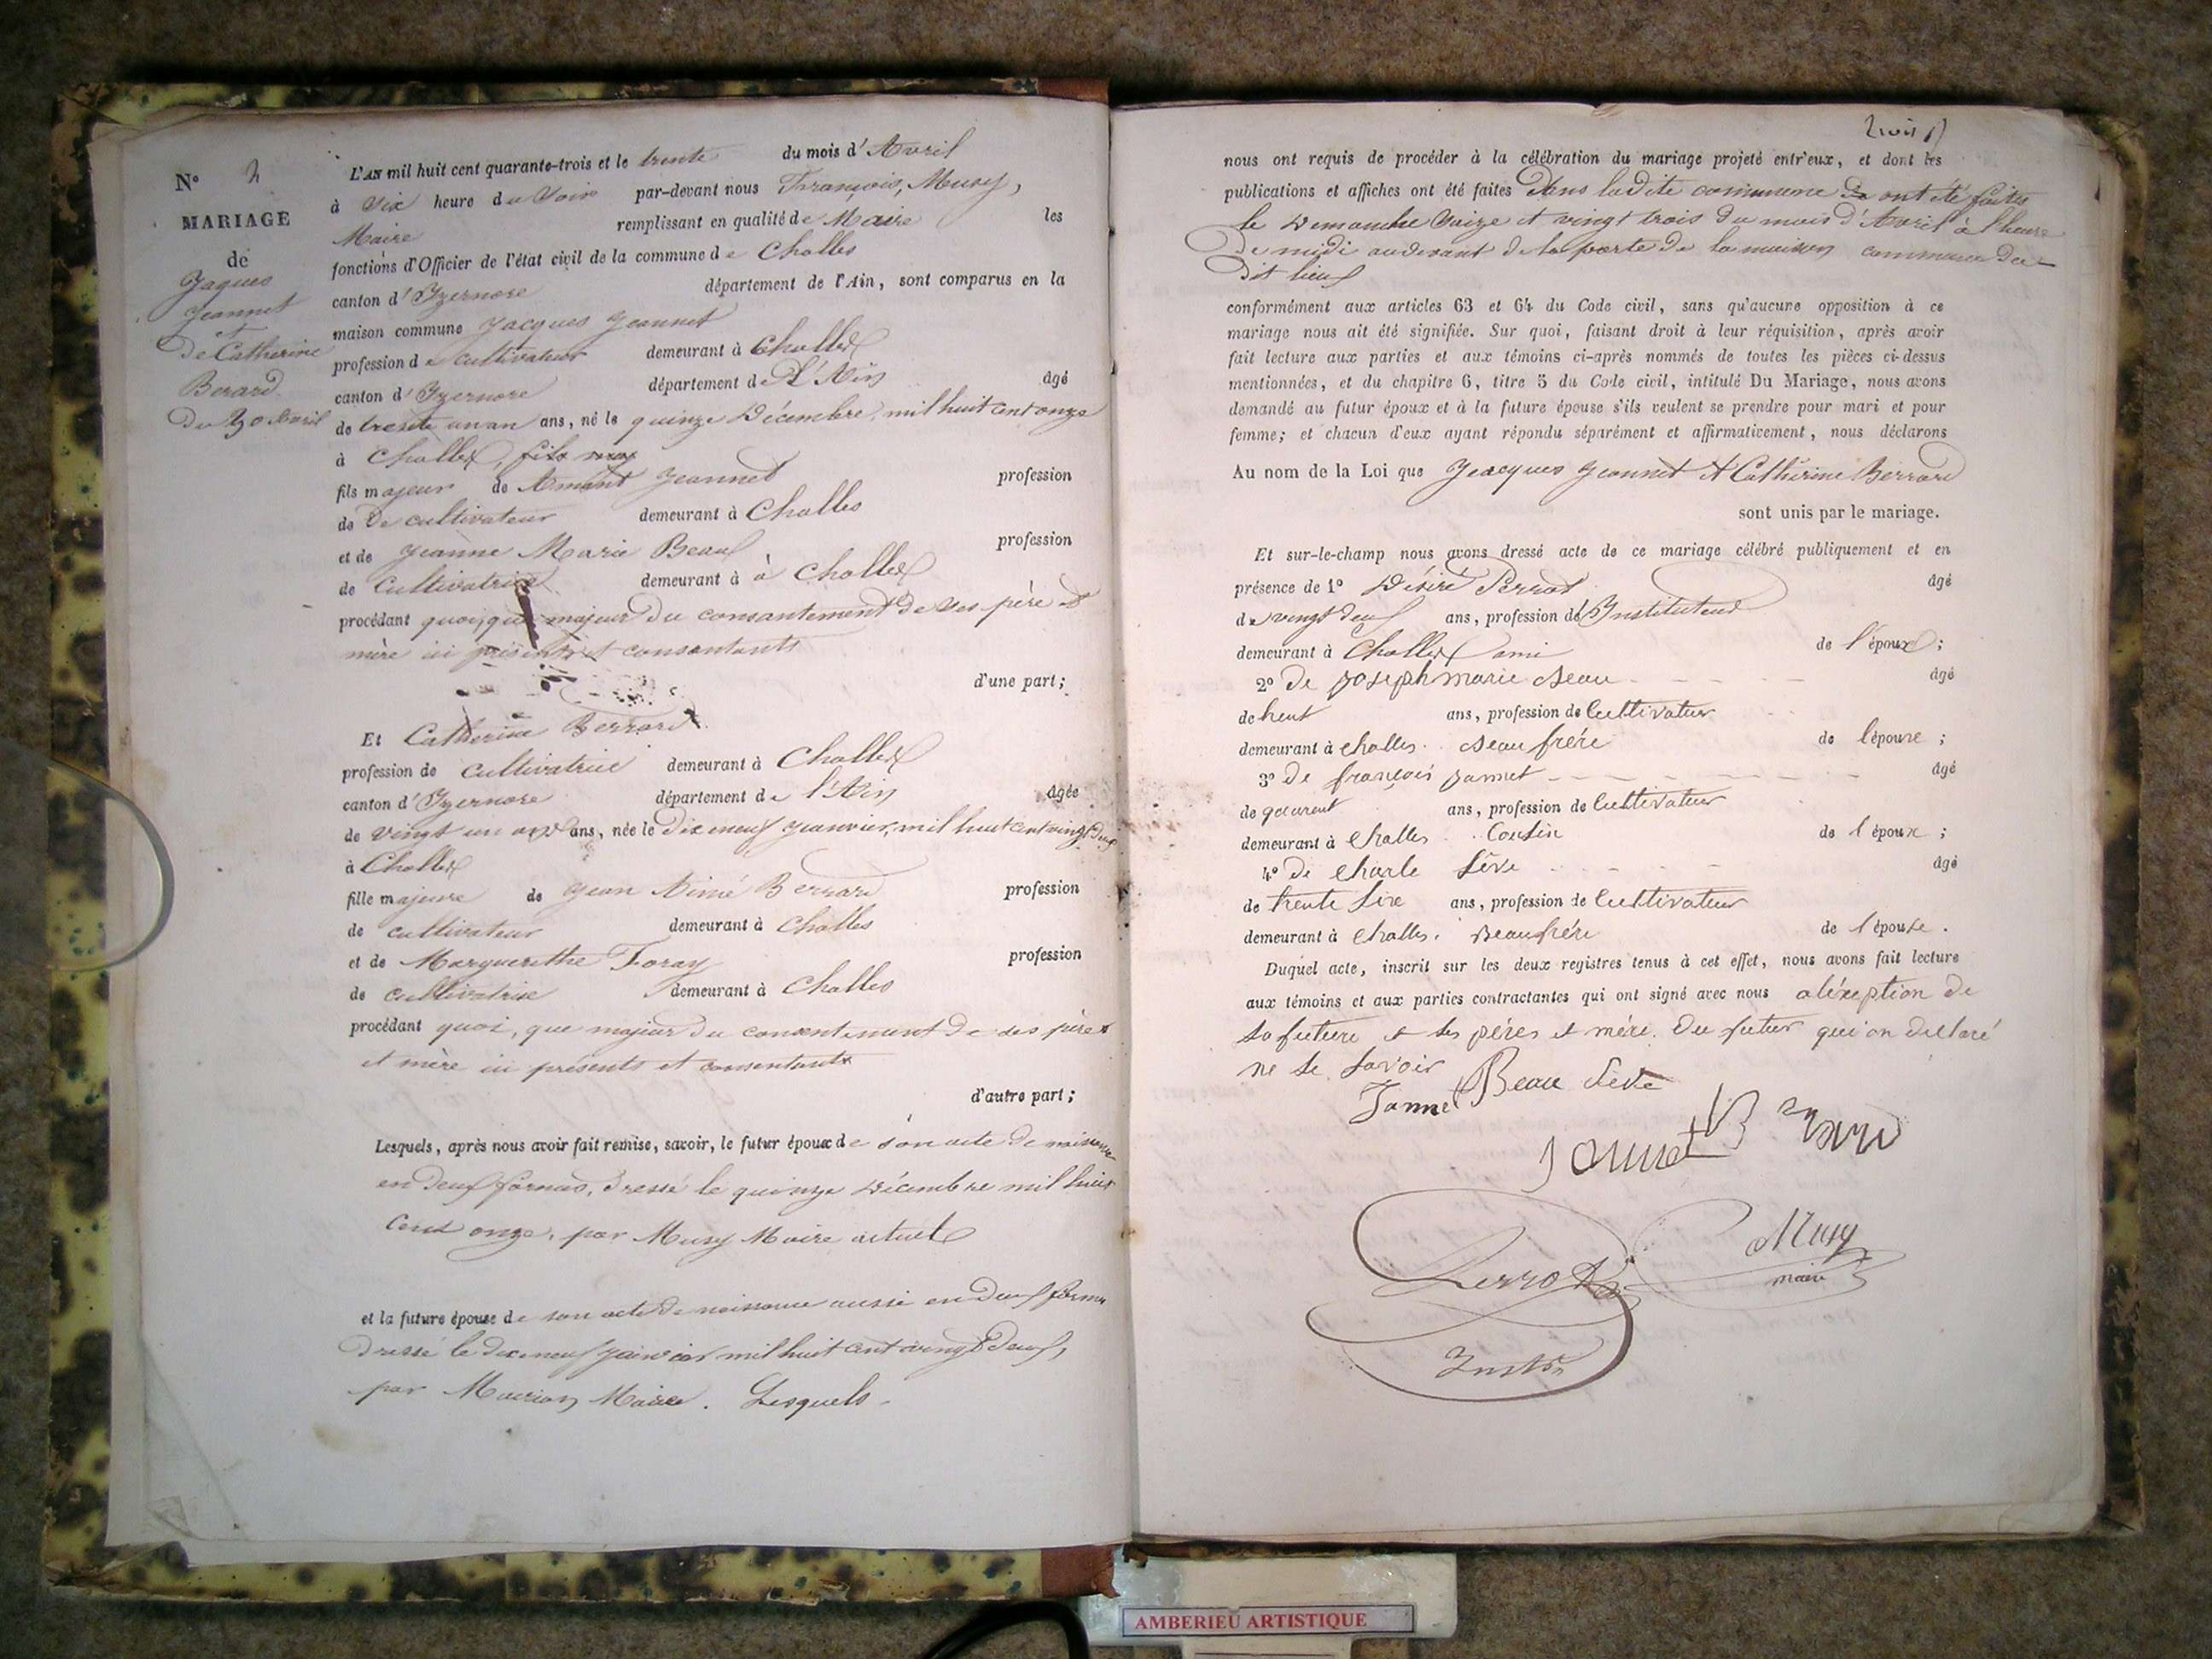 N° 2
MARIAGE
de
Jaques
Jeannet
et
De Catherine
Berard
Du 30 Avril
L'AN mil huit cent quarante-trois et le trente du mois d'Avril
à Six heure du Soir par-devant nous François, Musy,
Maire remplissant en qualité de Maire les
fonctions d'Officier de l'état civil de la commune de Challes
canton d'Izernore département de l'Ain, sont comparus en la
maison commune Jacques Jeannet
profession de cultivateur demeurant à Challes
canton d'Izernore département de L'Ain âgé
de trente un an ans, né le quinze Décembre, mil huit cent onze
à Challes, fils maj
fils majeur de Amant Jeannet profession
de De cultivateur demeurant à Challes
et de Jeanne Marie Beau profession
de Cultivatrice demeurant à à Challes
procédant quoi,que majeur Du consantement de ses père et
mère ici présents et consantants
d'une part;
Et Catherine Berrard
profession de cultivatrice demeurant à Challes
canton d'Izernore département de l'Ain âgée
de vingt un ans ans, née le Dix neuf Janvier, mil huit cent vingt Deux
à Challes
fille majeure de Jean Aimé Berrard profession
de cultivateur demeurant à Challes
et de Marguerithe Foray profession
de cultivatrice demeurant à Challes
procédant quoi, que majeur du consentement De ses père
et mère ici présents et consentants
d'autre part;
Lesquels, après nous avoir fait remise, savoir, le futur époux de son acte de naissance
en Deux formes, Dressé le quinze Décembre mil huit
Cent onze, par Musy Maire actuel
et la future épouse de son acte De naissance aussi en Deux formes
Dressé le Dix neuf Janvier mil huit cent vingt Deux,
par Maire. Lesquels
trois
nous ont requis de procéder à la célébration du mariage projeté entr'eux, et dont les
publications et affiches ont été faites Dans la Dite commune ont été faites
le Dimanche Saize et vingt trois Du mois d'Avril à l'heure
De midi au devant De la porte De la maison commune Du
Dit lieu
conformément aux articles 63 et 64 du Code civil, sans qu'aucune opposition à ce
mariage nous ait été signifiée. Sur quoi, faisant droit à leur réquisition, après avoir
fait lecture aux parties et aux témoins ci-après nommés de toutes les pièces ci-dessus
mentionnées, et du chapitre 6, titre 5 du Code civil, intitulé Du Mariage, nous avons
demandé au futur époux et à la future épouse s'ils veulent se prendre pour mari et pour
femme; et chacun d'eux ayant répondu séparément et affirmativement, nous déclarons
Au nom de la Loi que Jeacques Jeannet et Catherine Berrard
sont unis par le mariage.
Et sur-le-champ nous avons dressé acte de ce mariage célébré publiquement et en
présence de 1° Désiré Perrot âgé
de vingt Deux ans, profession d'Instituteur
demeurant à Challes ami de l'époux;
2° De joseph marie Beau âgé
de trent ans, profession de Cultivateur
demeurant à Challes. Beau frère de l'épouse;
3° De françois jannet âgé
de quarent ans, profession de Cultivateur
demeurant à Challes Cousin de l'époux;
4° De Charle Sève âgé
de trente Sixe ans, profession de Cultivateur
demeurant à Challes. Beau frère de l'épouse.
Duquel acte, inscrit sur les deux registres tenus à cet effet, nous avons fait lecture
aux témoins et aux parties contractantes qui ont signé avec nous a léxeption de
la future et les pères et mère. Du futur qui on déclaré
ne le Savoir
Jannet Beau Sève
Jannet
Perrot Musy
maire
Instr
AMBERIEU ARTISTIQUE